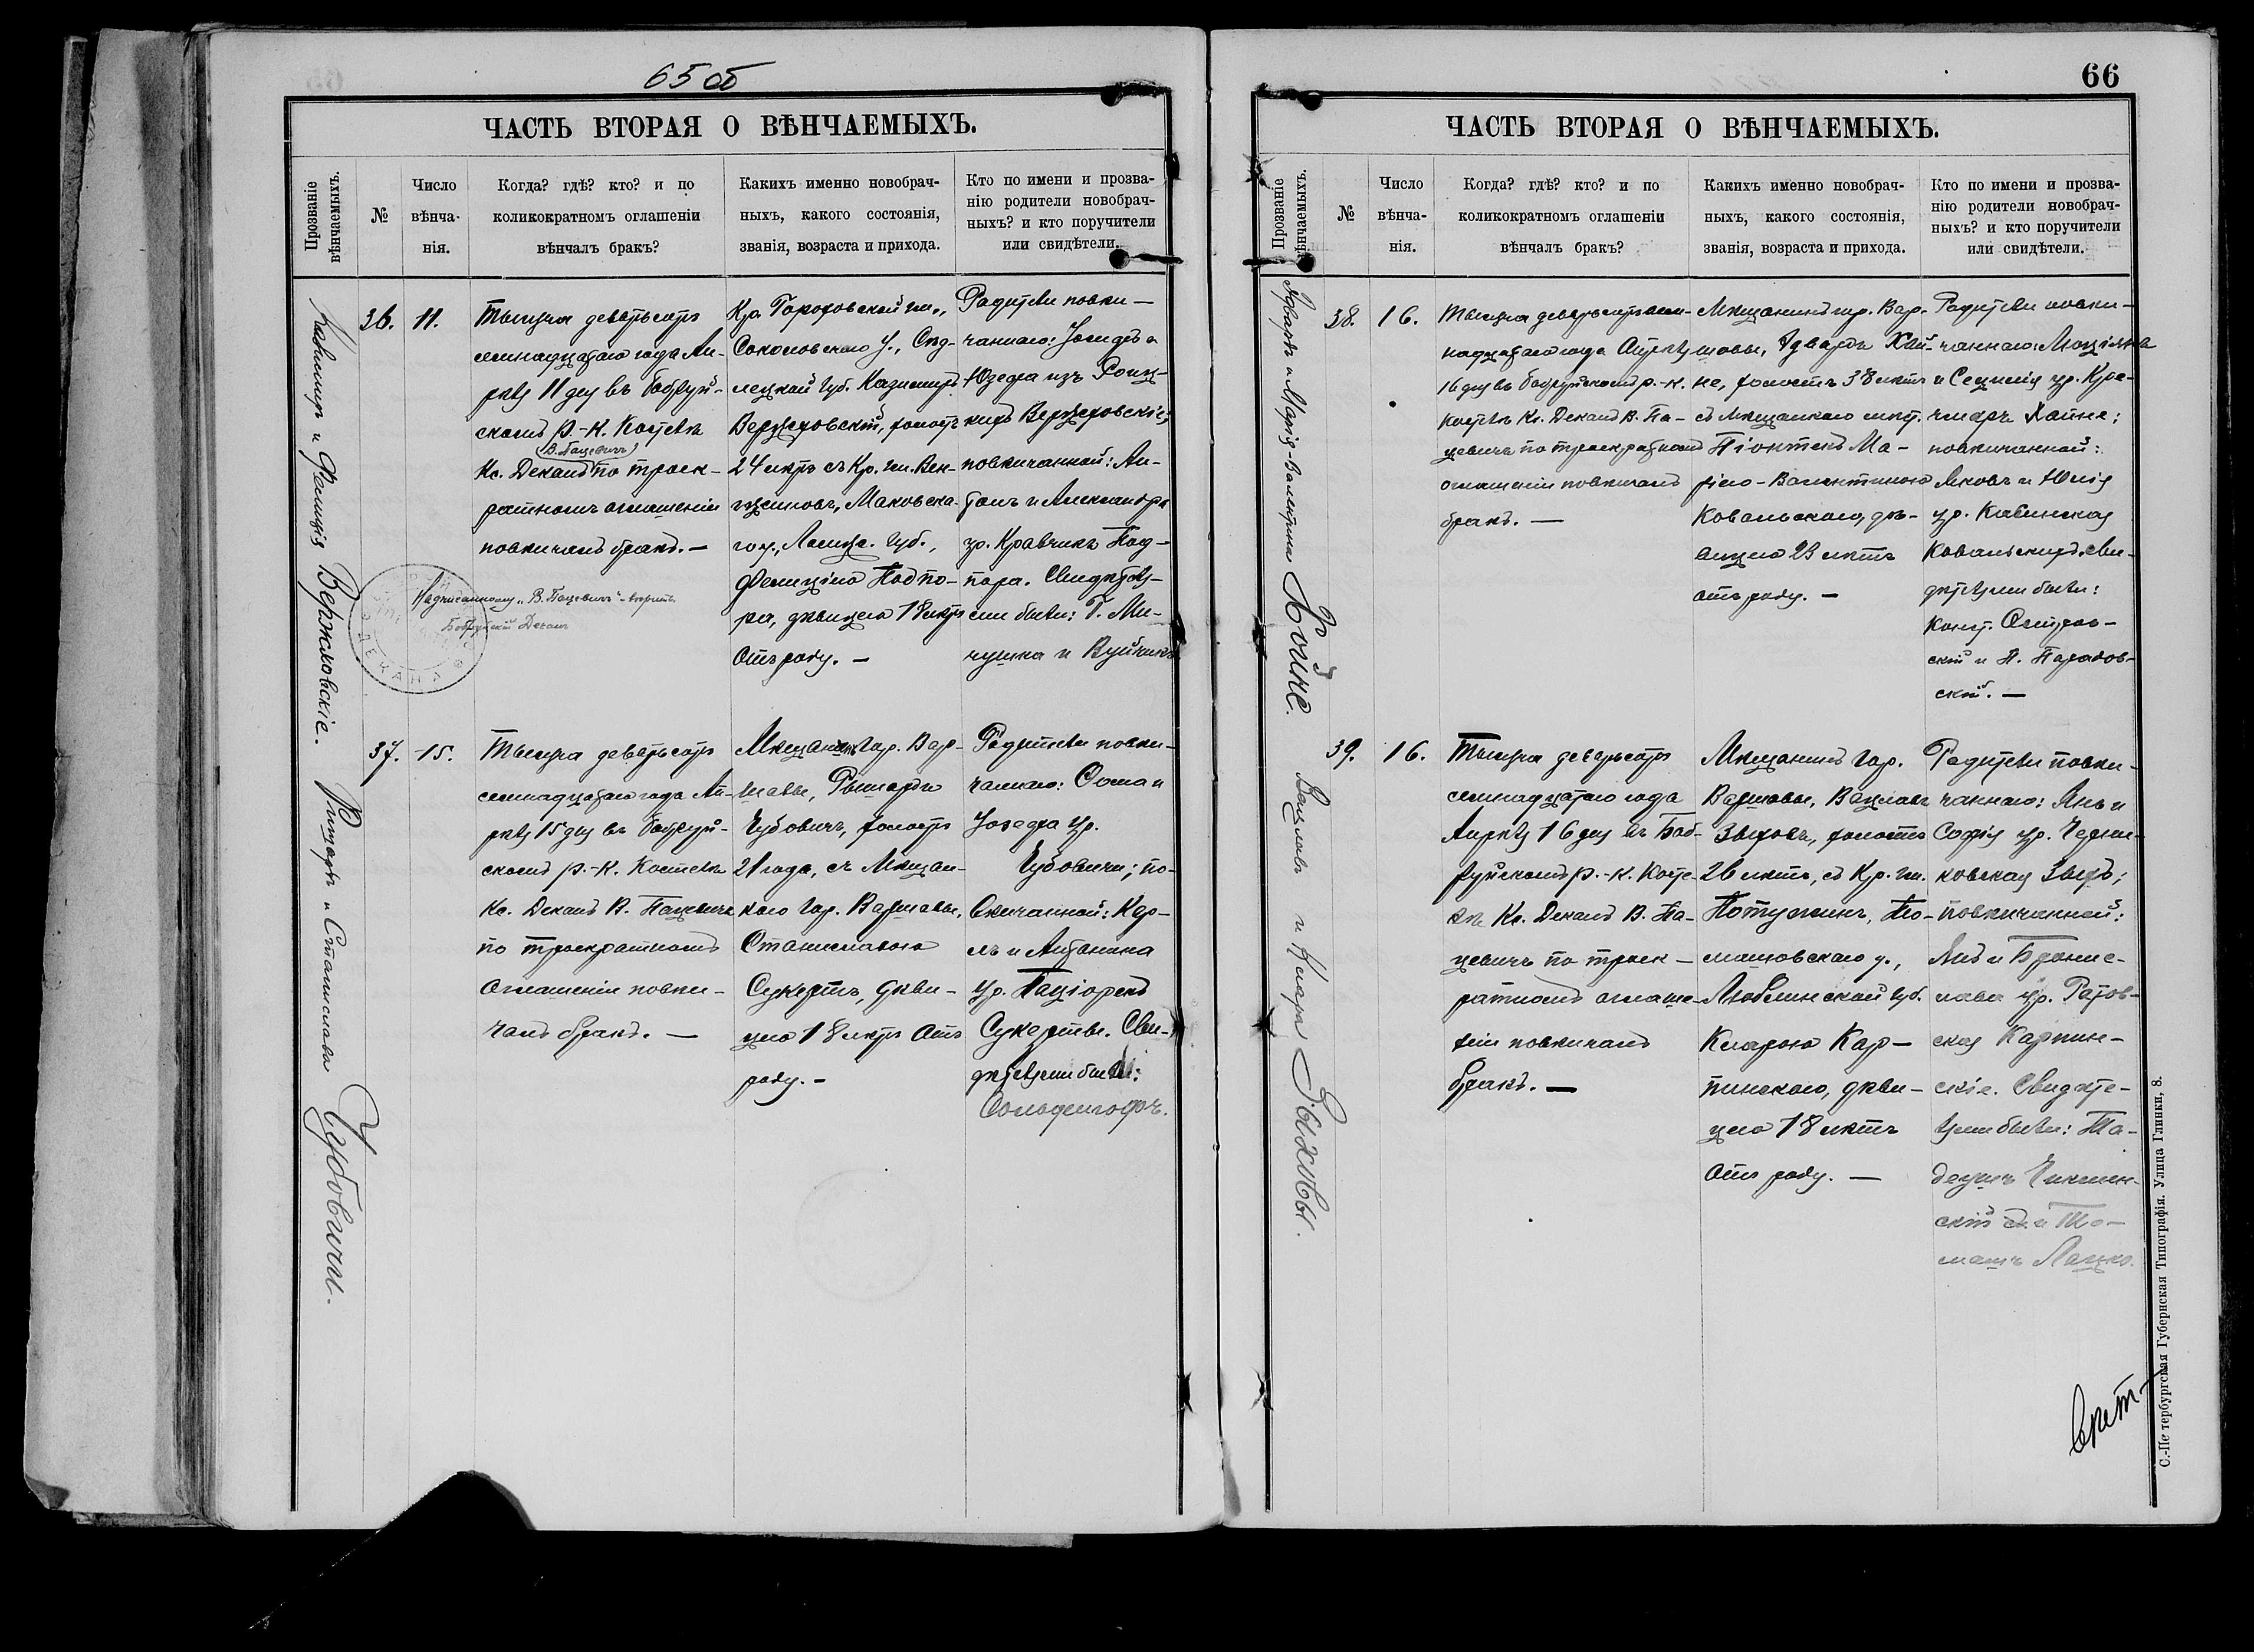 65 об
ЧАСТЬ ВТОРАЯ О ВѢНЧАЕМЫХЪ.
Прозваніе
вѣнчаемыхъ.
№
Число
вѣнча-
нія.
Когда? гдѣ? кто? и по
коликократномъ оглашеніи
вѣнчалъ бракъ?
Какихъ именно новобрач-
ныхъ, какого состоянія,
званія, возраста и прихода.
Кто по имени и прозва-
нію родители новобрач-
ныхъ? и кто поручители
или свидѣтели.
Казимиръ и Фелиція Вержховскіе.
36.
11.
Тысяча девятьсотъ
семнадцатаго года Ап-
рѣля 11 дня въ Бобруй-
скомъ р.-к. Костелѣ
(В. Пацевичъ)
Кс. Деканъ по троек-
ратномъ оглашеніи
повѣнчалъ бракъ. —
Надписанному „В. Пацевичъ" - вѣрить
Бобруйскій Деканъ
ДЕКАНА
Кр. Гороховской гм.,
Соколовскаго у., Сѣд-
лецкой губ. Казимиръ
Вержховскій, холостъ
24 лѣтъ съ Кр. гм. Вен-
Маковска-
го у., Ломж. губ.,
Фелиціею Подпо-
ра, дѣвицею 18 лѣтъ
отъ роду. —
Родители повѣн-
чаннаго: Іосифъ и
Юзефа изъ
Вержховскіе;
повѣнчанной: Ан-
тонъ и Александра
ур. Кравчикъ Под-
пора. Свидѣте-
лями были: Г. Ми-
чушка и Вуйчикъ
Ришардъ и Станислава Чубовичи.
37.
15.
Тысяча девятьсотъ
семнадцатаго года Ап-
рѣля 15 дня въ Бобруй-
скомъ р.-к. Костелѣ
Кс. Деканъ В. Пацевичъ
по троекратномъ
оглашеніи повѣн-
чалъ бракъ. —
Мѣщанинъ гор. Вар-
шавы, Рышардъ
Чубовичъ, холостъ
21 года, съ Мѣщан-
кою гор. Варшавы,
Станиславою
Сукертъ, дѣви-
цею 18 лѣтъ отъ
роду. —
Родители повѣн-
чаннаго: Ѳома и
Іозефа ур.
Чубовичи; по-
вѣнчанной: Кар-
лъ и Антонина
ур. Паціорекъ
Сукерты. Сви-
дѣтелями были:
66
ЧАСТЬ ВТОРАЯ О ВѢНЧАЕМЫХЪ.
Прозваніе
вѣнчаемыхъ.
№
Число
вѣнча-
нія.
Когда? гдѣ? кто? и по
коликократномъ оглашеніи
вѣнчалъ бракъ?
Какихъ именно новобрач-
ныхъ, какого состоянія,
званія, возраста и прихода.
Кто по имени и прозва-
нію родители новобрач-
ныхъ? и кто поручители
или свидѣтели.
Эдвардъ и Марія-Валентина Хойне.
38.
16.
Тысяча девятьсотъ сем-
надцатаго года Апрѣля
16 дня въ Бобруйскомъ р.-к.
Костелѣ Кс. Деканъ В. Па-
цевичъ по троекратномъ
оглашеніи повѣнчалъ
бракъ. —
Мѣщанинъ гор. Вар-
шавы, Эдвардъ Хой-
не, холостъ 38 лѣтъ
съ мѣщанкою мѣст.
Піонтекъ Ма-
ріею-Валентиною
Ковальскою, дѣ-
вицею 23 лѣтъ
отъ роду. —
Родители повѣн-
чаннаго: Люціянъ
и Сецилія ур. Кре-
чмаръ Хойне;
повѣнчанной:
Яковъ и Юлія
ур. Кабинская
Ковальскихъ. Сви-
дѣтелями были:
Конст. Остров-
скій и П. Парадов-
скій. —
Вацлавъ и Клара Зыховы.
39.
16.
Тысяча девятьсотъ
семнадцатаго года
Апрѣля 16 дня въ Боб-
руйскомъ р.-к. Косте-
лѣ Кс. Деканъ В. Па-
цевичъ по троек-
ратномъ оглаше-
ніи повѣнчалъ
бракъ. —
Мѣщанинъ гор.
Варшавы, Вацлавъ
Зыховъ, холостъ
26 лѣтъ, съ Кр. гм.
Потужинъ, То-
машовскаго у.,
Люблинской губ.
Кларою Кар-
пинскою, дѣви-
цею 18 лѣтъ
отъ роду. —
Родители повѣн-
чаннаго: Янъ и
Софія ур. Черни-
ковская Зыхъ;
повѣнчанной:
Янъ и Бронис-
лава ур. Ратов-
ская Карпин-
скіе. Свидѣте-
лями были: Та-
деушъ
скій и То-
машъ Лацко.
С.-Петербургская Губернская Типографія. Улица Глинки, 8.